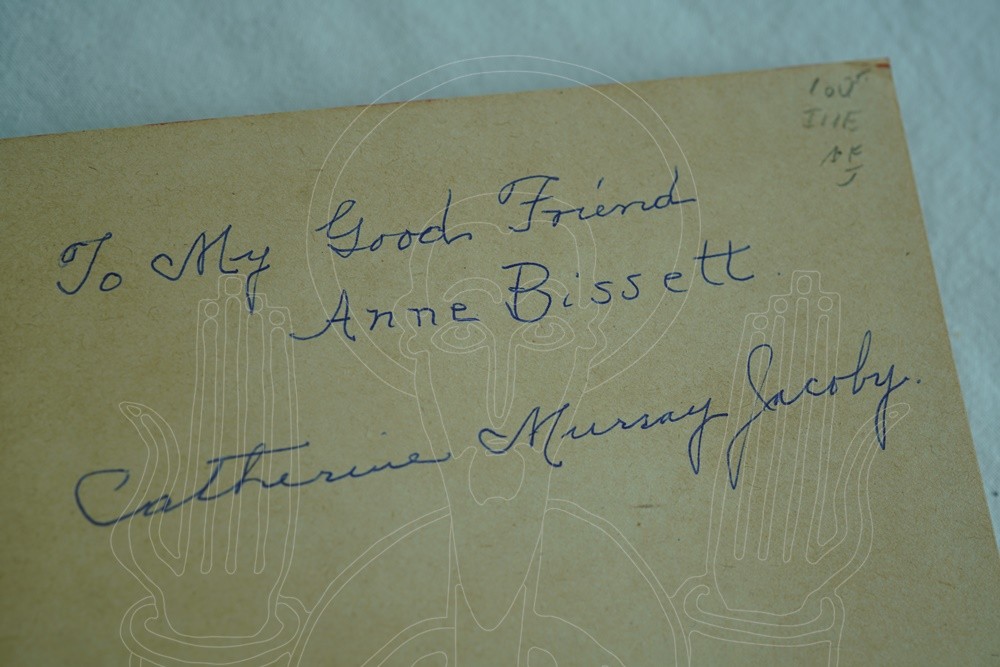 To My Good Friend
Anne Bissett.
Catherine Murray Jacoby.